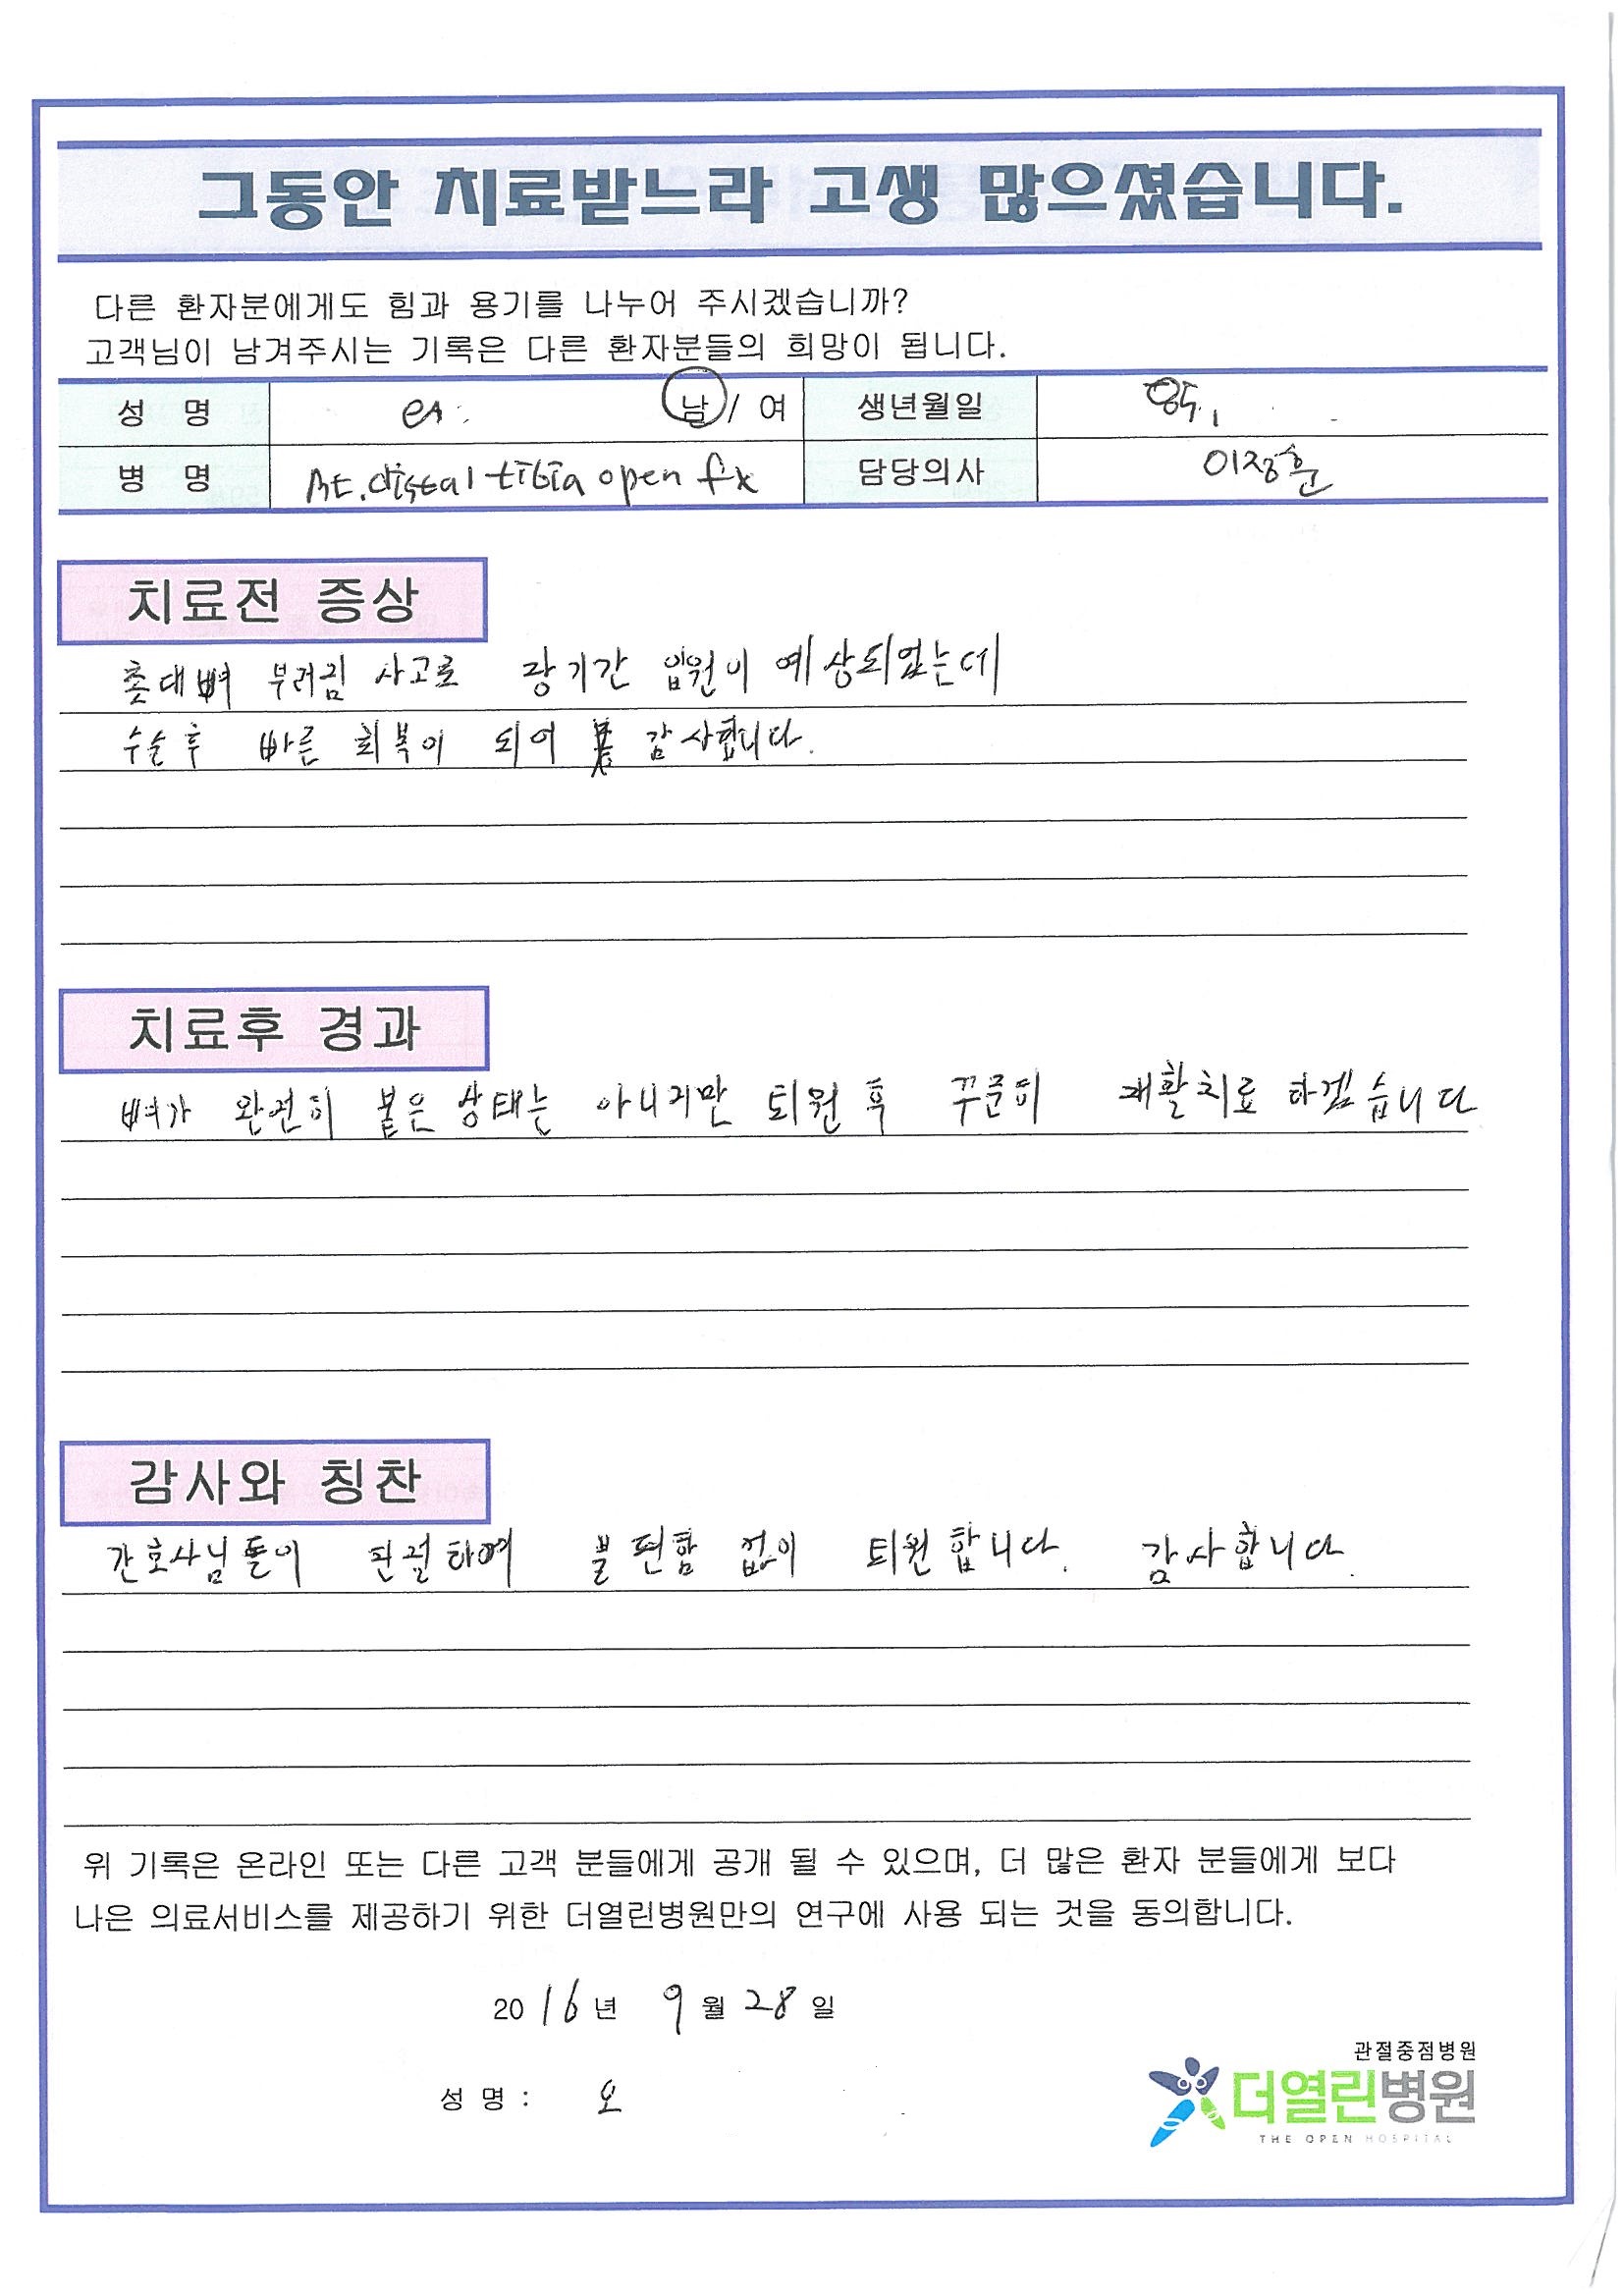 그동안 치료받느라 고생 많으셨습니다.
다른 환자분에게도 힘과 용기를 나누어 주시겠습니까?
고객님이 남겨주시는 기록은 다른 환자분들의 희망이 됩니다.
성 명 남 / 여 생년월일
병 명 Rt. distal tibia open fx 담당의사 이장훈
치료전 증상
촛대뼈 부러짐 사고로 장기간 입원이 예상되었는데
수술후 빠른 회복이 되어 감사합니다.
치료후 경과
뼈가 완전히 붙은 상태는 아니지만 퇴원 후 꾸준히 재활치료 하겠습니다
감사와 칭찬
간호사님들이 친절하여 불편함 없이 퇴원합니다. 감사합니다.
위 기록은 온라인 또는 다른 고객 분들에게 공개 될 수 있으며, 더 많은 환자 분들에게 보다
나은 의료서비스를 제공하기 위한 더열린병원만의 연구에 사용 되는 것을 동의합니다.
2016년 9월 28일
성 명 : 오
관절중점병원
더열린병원
THE OPEN HOSPITAL